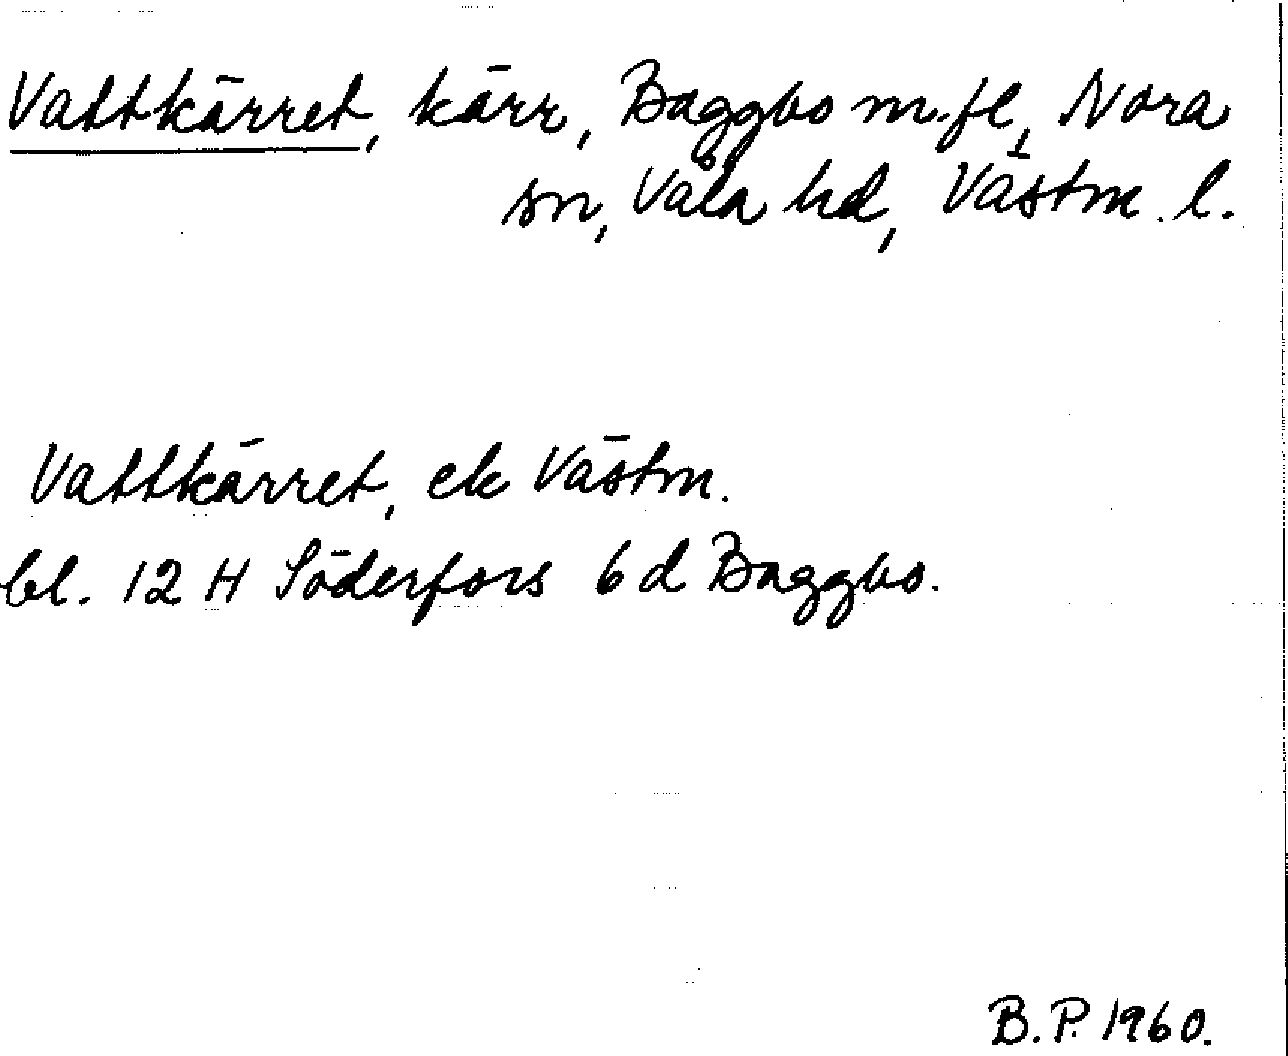 Vattkärret, kärr, Baggbo m.fl, Nora
sn, Våla hd, Västm. l.
Vattkärret, ek Västm.
bl. 12 H Söderfors 6 d Baggbo.
B.P. 1960.